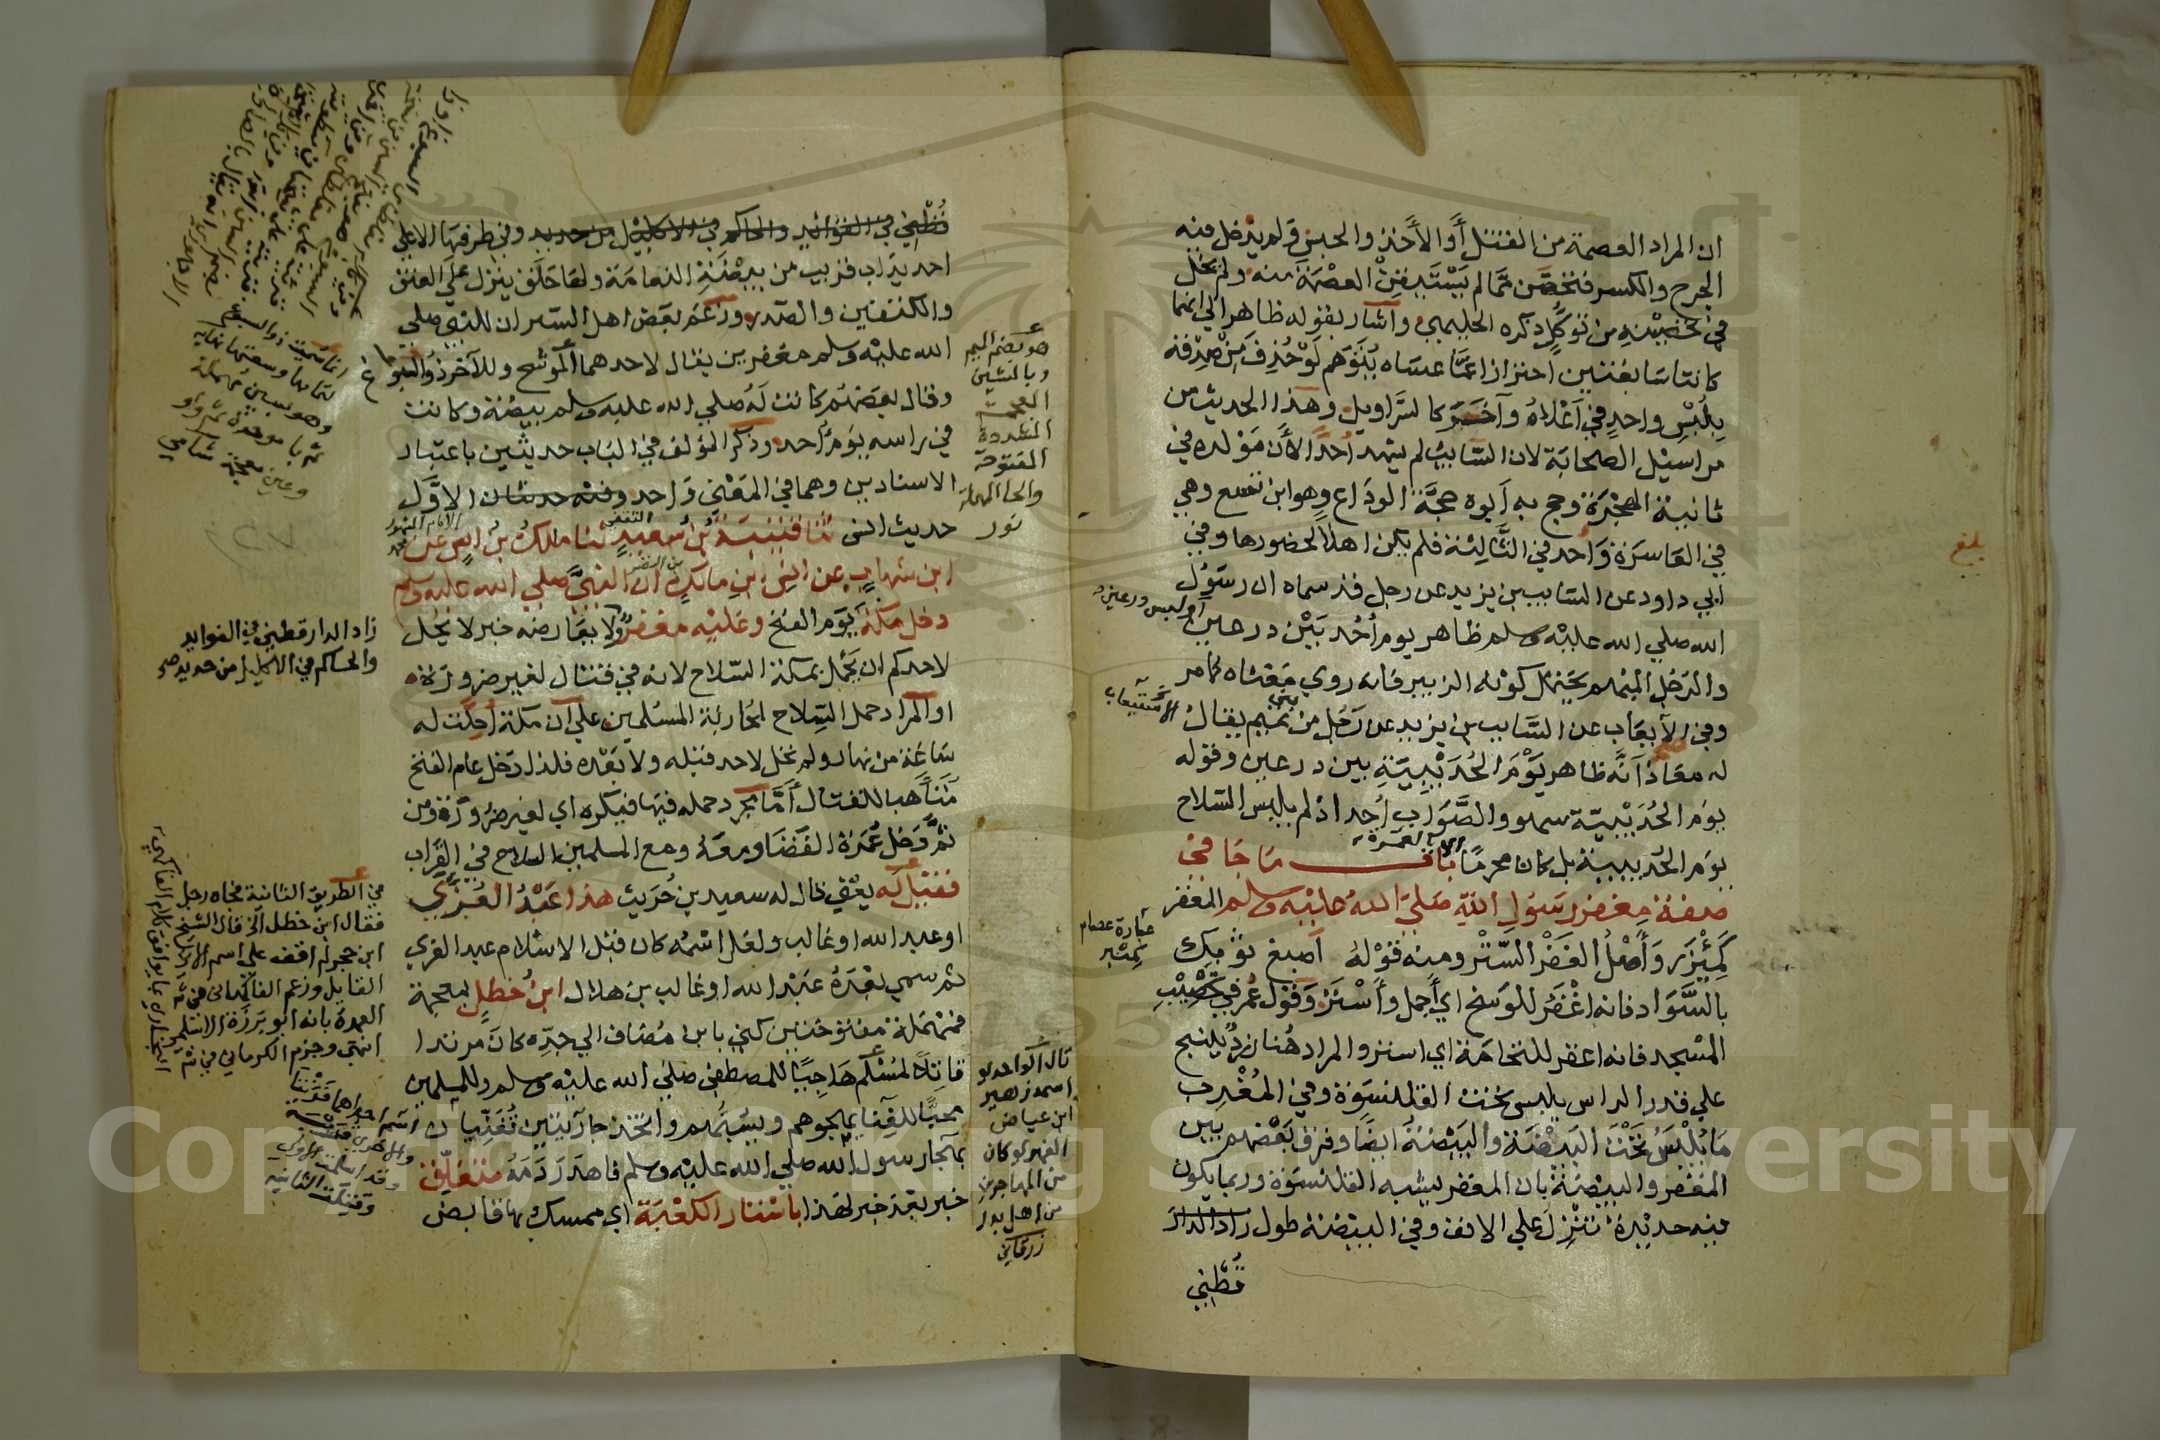 ان المراد العصمة من القتل أو الأخذ والحبس ولم يدخل فيه
الجرح والكسر فتخص مما لم يستيقن العصمة منه ولم يخل
في تحصينه من توكل ذكره الحليمي وأشار بقوله ظاهر الي انهما
كانتا سابغتين احترازا عما عساه يتوهم لو حذف من صدقه
بلبس واحد في أعلاه وآخر كالسراويل وهذا الحديث من
مراسيل الصحابة لان السايب لم يشهد أحدا لأن مولده في
ثانية الهجرة وحج به أبوه حجة الوداع وهو ابن تسع وهي
في العاشرة وأحد في الثالثة فلم يكن اهلا لحضورها وفي
ابي داود عن السايب بن يزيد عن رجل قد سماه ان رسول
الله صلي الله عليه وسلم ظاهر يوم أحد بين درعين
أو لبس درعين
والرجل المبهم يحتمل كونه الزبير فانه روي معناه كما مر
وفي الاستيعاب عن السايب بن يزيد عن رجل من بني تميم يقال
الاستيعاب
له معاذ أنه ظاهر يوم الحديبية بين درعين وقوله
يوم الحديبية سهو والصواب أحد اذ لم يلبس السلاح
يوم الحديبية بل كان محرما بالعمرة باب ما جا في
صفة مغفر رسول الله صلي الله عليه وسلم المغفر
عبارة عصام
كمنبر
كمئزر وأصل الغفر الستر ومنه قوله أصبغ ثوبك
بالسواد فانه اغفر للوسخ اي أحمل وأستر وقول عمر في تحصيب
المسجد فانه اغفر للنخامة اي استر والمراد هنا زرد ينسج
علي قدر الراس يلبس تحت القلنسوة وفي المغرب
ما يلبس تحت البيضة والبيضة ايضا وفرق بعضهم بين
المغفر والبيضة بان المغفر يشبه القلنسوة وربما يكون
فيه حديدة تنزل علي الانف وفي البيضة طول زاد الدار
قطني
بلغ
قطني في الفوائد والحاكم في الاكليل من حديد وفي طرفها الاعلي
احديداب قريب من بيضة النعامة ولها حلق ينزل علي العنق
والكتفين والصدر وزعم بعض اهل السير ان للنبي صلي
الله عليه وسلم مغفرين يقال لاحدهما الموشح وللآخر ذو السبوغ
وقال بعضهم كانت له صلي الله عليه وسلم بيضة وكانت
في راسه يوم أحد وذكر المؤلف في الباب حديثين باعتبار
الاسنادين وهما في المعني واحد وفيه حديثان الاول
حديث انس ثنا قتيبة بن سعيد الثقفي ثنا مالك بن أنس عن
ابن شهاب عن انس بن مالك بن النضر ان النبي صلي الله عليه وسلم
دخل مكة يوم الفتح وعليه مغفر ولا يعارضه خبر لا يحل
لاحدكم ان يحمل بمكة السلاح لانه في قتال لغير ضرورة
او المراد حمل السلاح لمحاربة المسلمين علي أن مكة أحلت له
ساعة من نهار ولم تحل لاحد قبله ولا بعده فلذا دخل عام الفتح
متأهبا للقتال أما مجرد حمله فيها فيكره اي لغير ضرورة ومن
ثم دخل عمرة القضا ومعه ومع المسلمين السلاح في القراب
فقيل له يعني قال له سعيد بن حريث هذا عبد العزي
او عبد الله او غالب ولعل اسمه كان قبل الاسلام عبد العزي
ثم سمي بعده عبد الله او غالب بن هلال ابن خطل بمعجمة
فمهملة مفتوحتين كني بابن مضاف الي جده كان مرتدا
قاتلا لمسلم هاجيا للمصطفي صلي الله عليه وسلم وللمسلمين
محبا للقينات يهجوهم ويسبهم واتخذ جاريتين تغنيان
بهجا رسول الله صلي الله عليه وسلم فاهدر دمه متعلق
خبر بعد خبر لهذا باستار الكعبة اي ممسك بها قابض
هو بضم الميم
وبالشين
المعجمة
المشددة
المفتوحة
والحا المهملة
نور
قال الواحدي
اسمه زهير
ابن عياض
الفهري وكان
من المهاجرين
من اهل بدر
زرقاني
انما سميت ذو السبوغ
لتمامها وسعتها نهاية
وهو بسين مهملة
ثم با موحدة ثم واو
وغين معجمة شامي
زاد الدارقطني في الفوايد
والحاكم في الاكليل من حديد صح
في الطريق الثانية فجاه رجل
فقال ابن خطل الخ قال الشيخ
ابن حجر لم اقف علي اسم
القايل وزعم الفاكهاني في
العمدة بانه ابو برزة الاسلمي
انتهي وجزم الكرماني في
اسم احداهما قريبة
وقد اسلمت الاولي
وقتلت الثانية